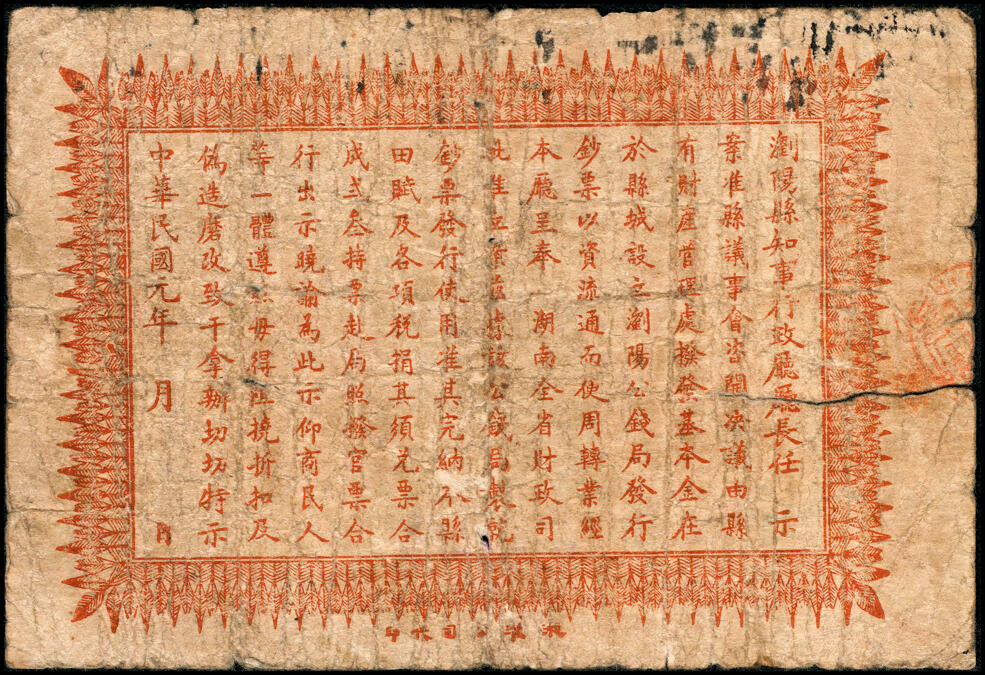 瀏陽縣知事行政廳廳長任 示
案准縣議事會咨開決議由縣
有財產管理處撥發基本金在
於縣城設立瀏陽公錢局發行
鈔票以資流通而使周轉業經
本廳呈奉 湖南全省財政司
批准立 該公錢局製就
鈔票發行使用准其完納本縣
田賦及各項稅捐其須兌票合
成弍叁持票赴局照撥官票合
行出示曉諭為此示仰商民人
等一體遵照毋得阻撓折扣及
偽造磨改致干拿辦切切特示
中華民國元年 月 日
公司代印